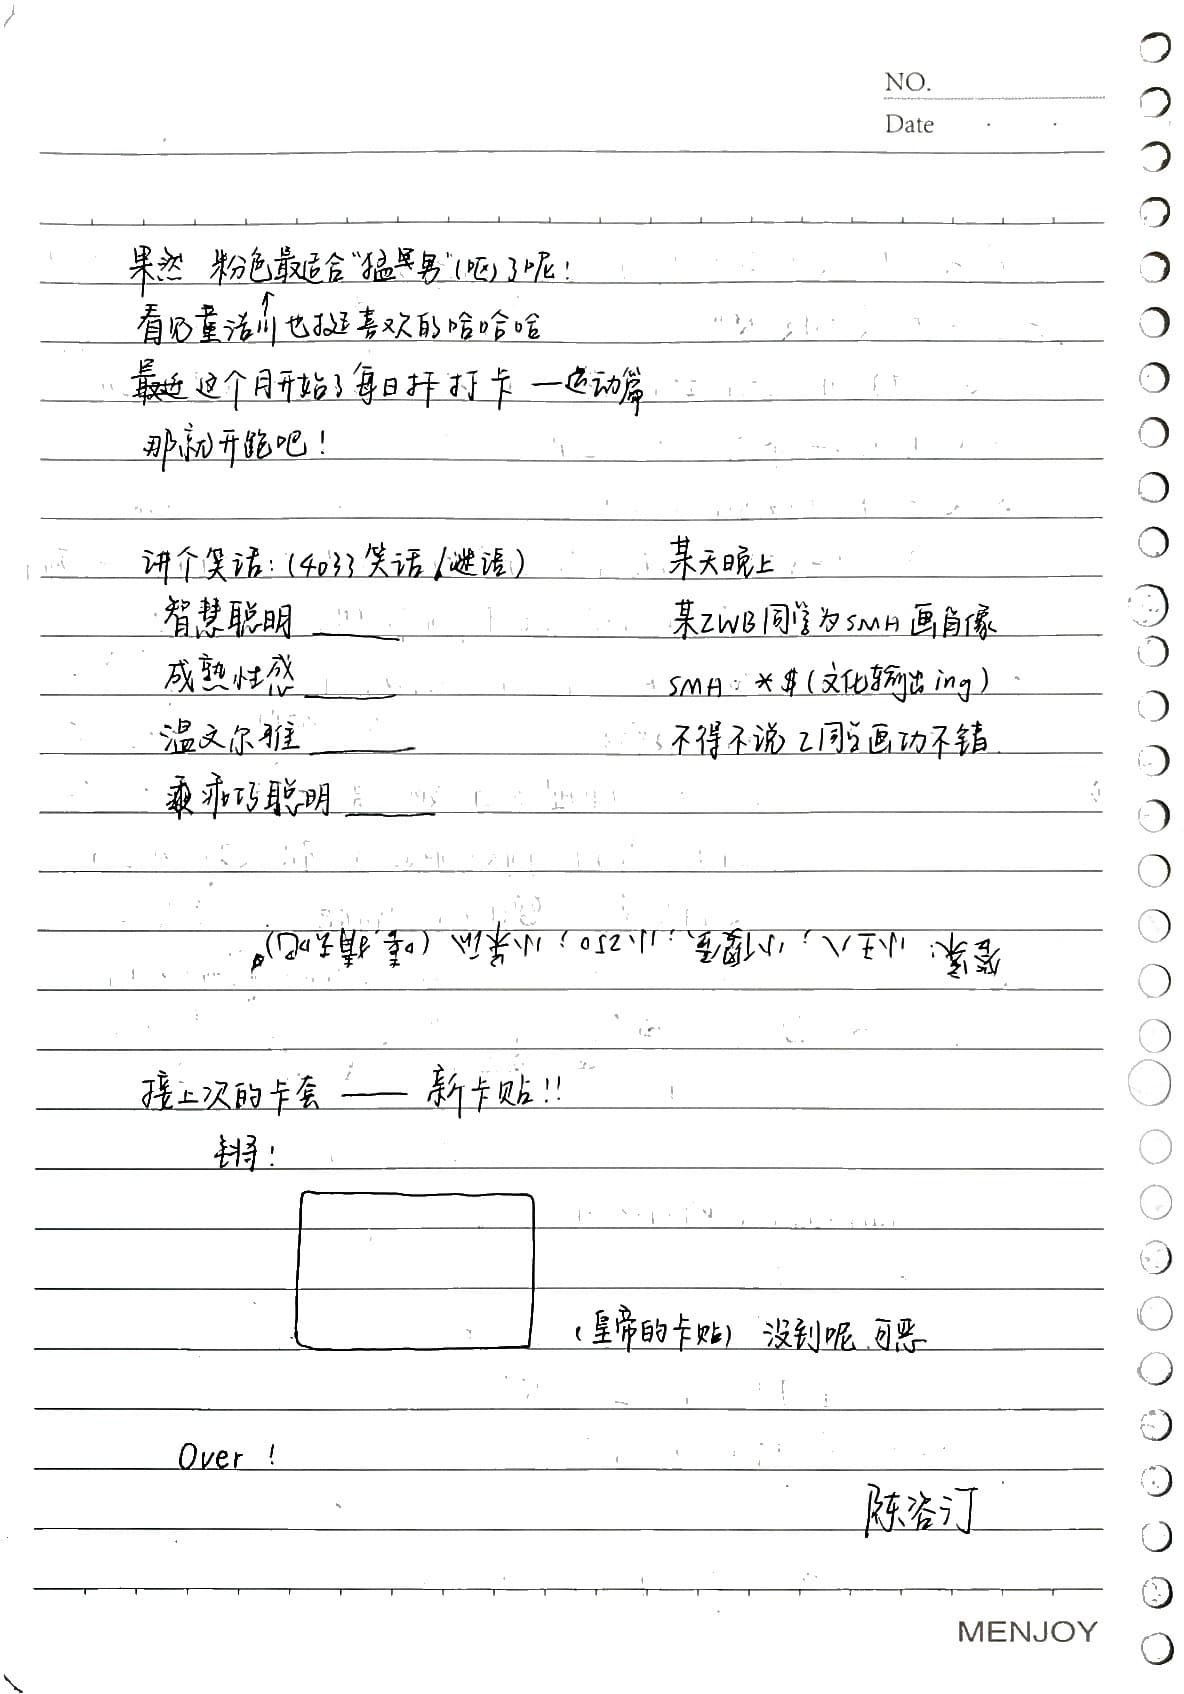 NO.
Date
果然 粉色最适合"猛男"(呕)了呢!
看见童诺川也挺喜欢的哈哈哈
最近 这个月开始了每日打卡—运动篇
那就开跑吧!
讲个笑话:(4033笑话/谜语)
智慧聪明
成熟性感
温文尔雅
乖巧聪明
某天晚上
某ZWB同学为SMH画肖像
SMH:*$(文化输出ing)
不得不说Z同学画功不错
答案: 小王八; 小傻蛋; 小250; 小呆瓜 (猜去吧)
接上次的卡套 —— 新卡贴!!
锵!
(皇帝的卡贴) 没到呢.可恶
Over !
陈咨汀
MENJOY